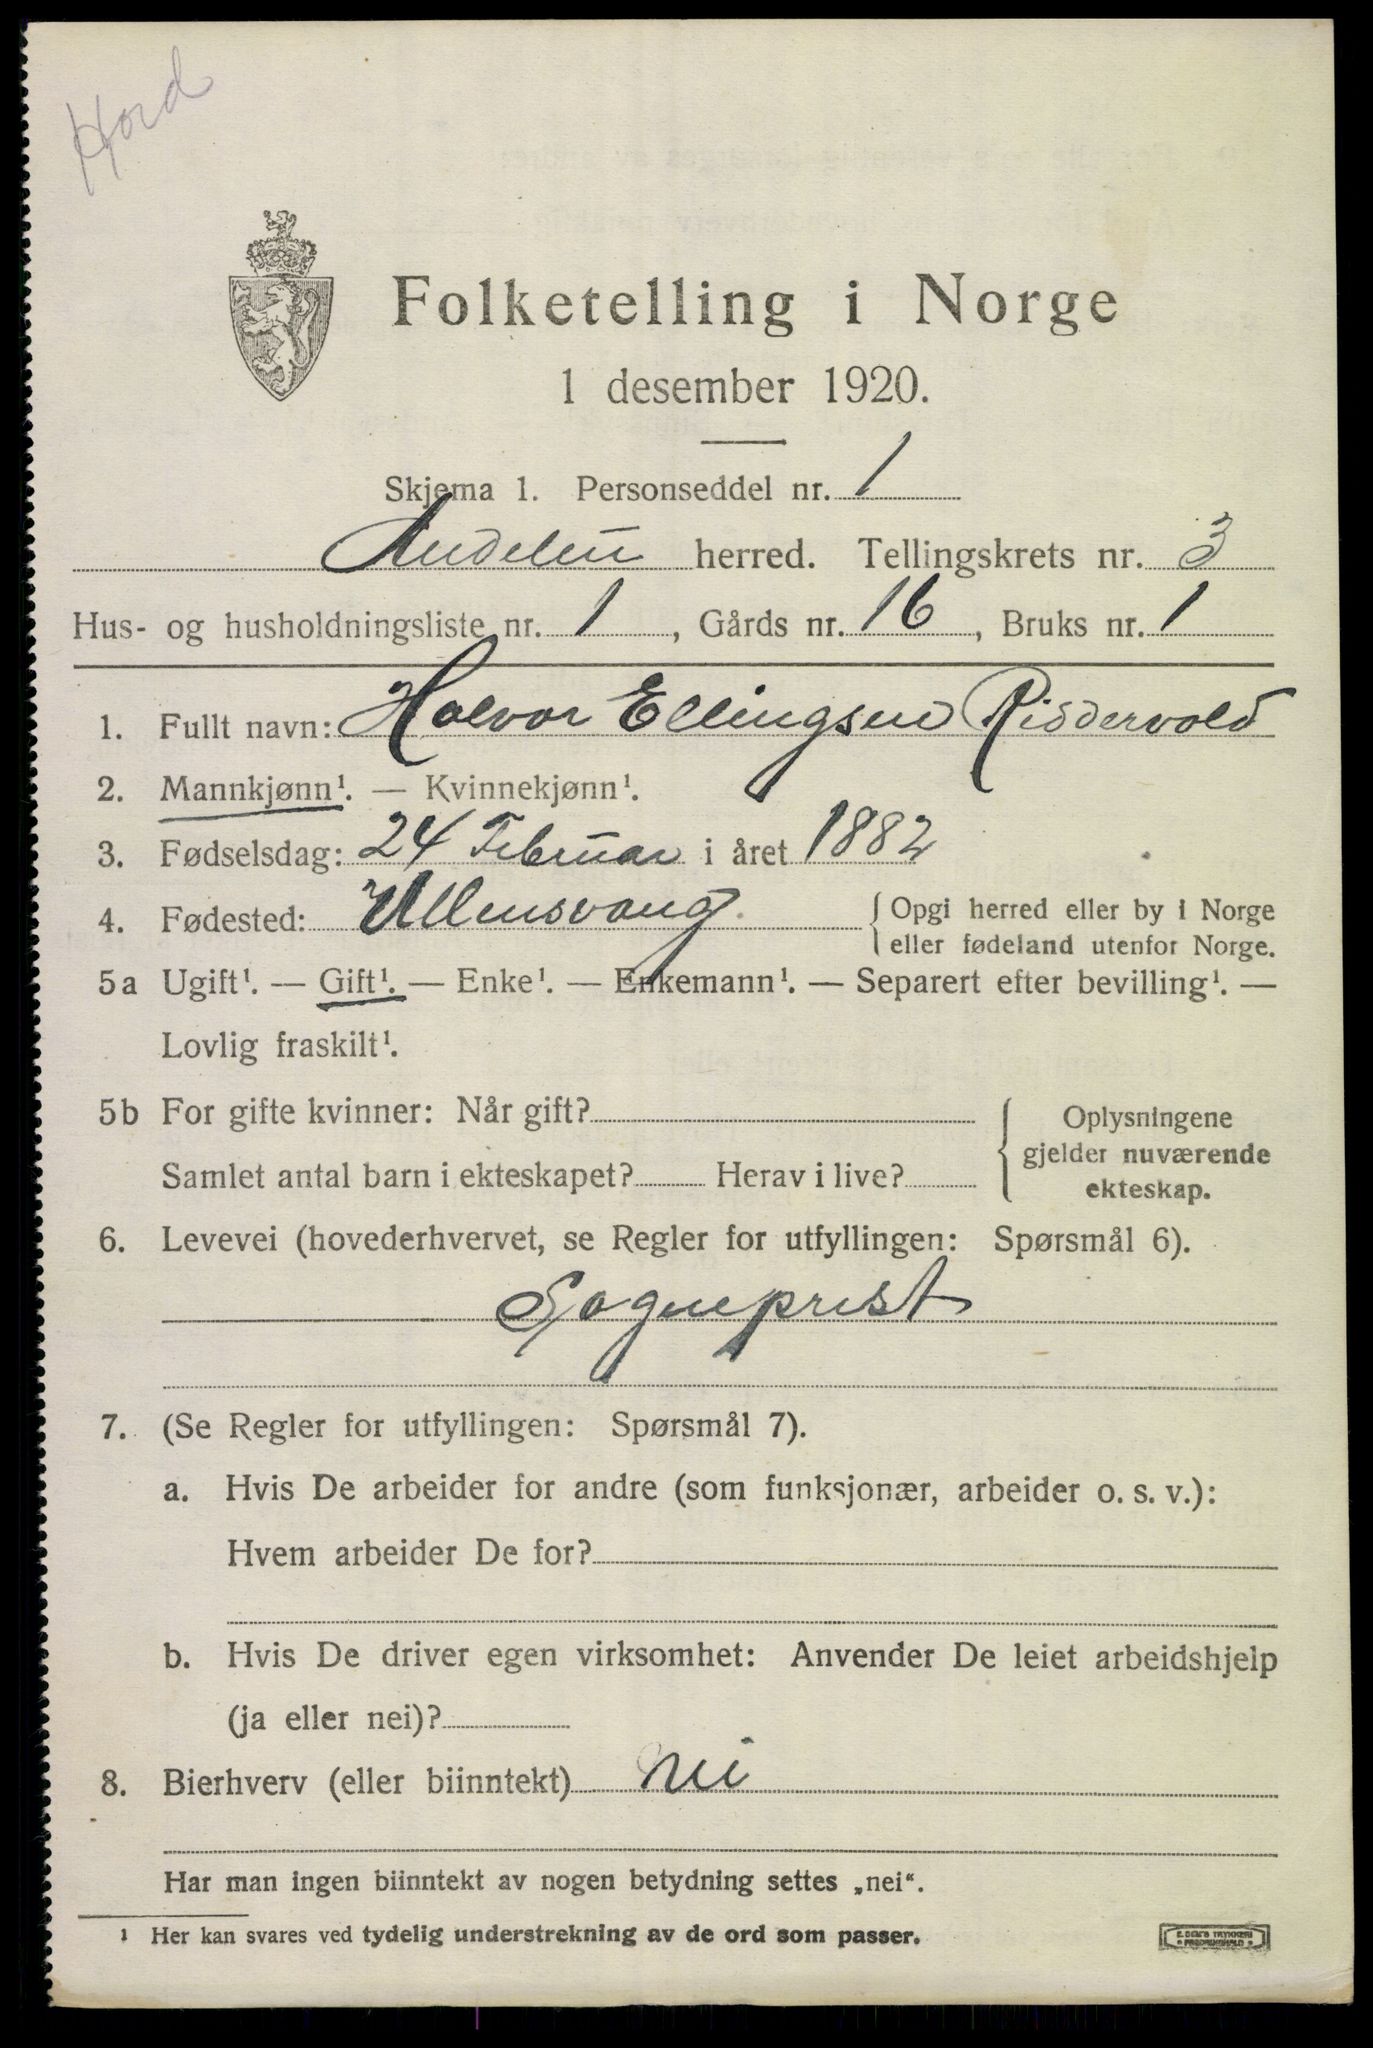 Hord
Folketelling i Norge
1 desember 1920.
Skjema 1. Personseddel nr. 1
herred. Tellingskrets nr. 3
Hus- og husholdningsliste nr. 1, Gårds nr. 16, Bruks nr. 1
1. Fullt navn: Halvor Ellingsen Riddervold
2. Mannkjønn¹. — Kvinnekjønn¹.
3. Fødselsdag: 24 Februar i året 1882
4. Fødested: Ullensvang. { Opgi herred eller by i Norge
eller fødeland utenfor Norge.
5a Ugift¹. — Gift¹. — Enke¹. — Enkemann¹. — Separert efter bevilling¹. —
Lovlig fraskilt¹.
5b For gifte kvinner: Når gift?
Samlet antal barn i ekteskapet? Herav i live?
{ Oplysningene
gjelder nuværende
ekteskap.
6. Levevei (hovederhvervet, se Regler for utfyllingen: Spørsmål 6).
Sogneprest
7. (Se Regler for utfyllingen: Spørsmål 7).
a. Hvis De arbeider for andre (som funksjonær, arbeider o. s. v.):
Hvem arbeider De for?
b. Hvis De driver egen virksomhet: Anvender De leiet arbeidshjelp
(ja eller nei)?
8. Bierhverv (eller biinntekt) nei
Har man ingen biinntekt av nogen betydning settes „nei“.
¹ Her kan svares ved tydelig understrekning av de ord som passer.